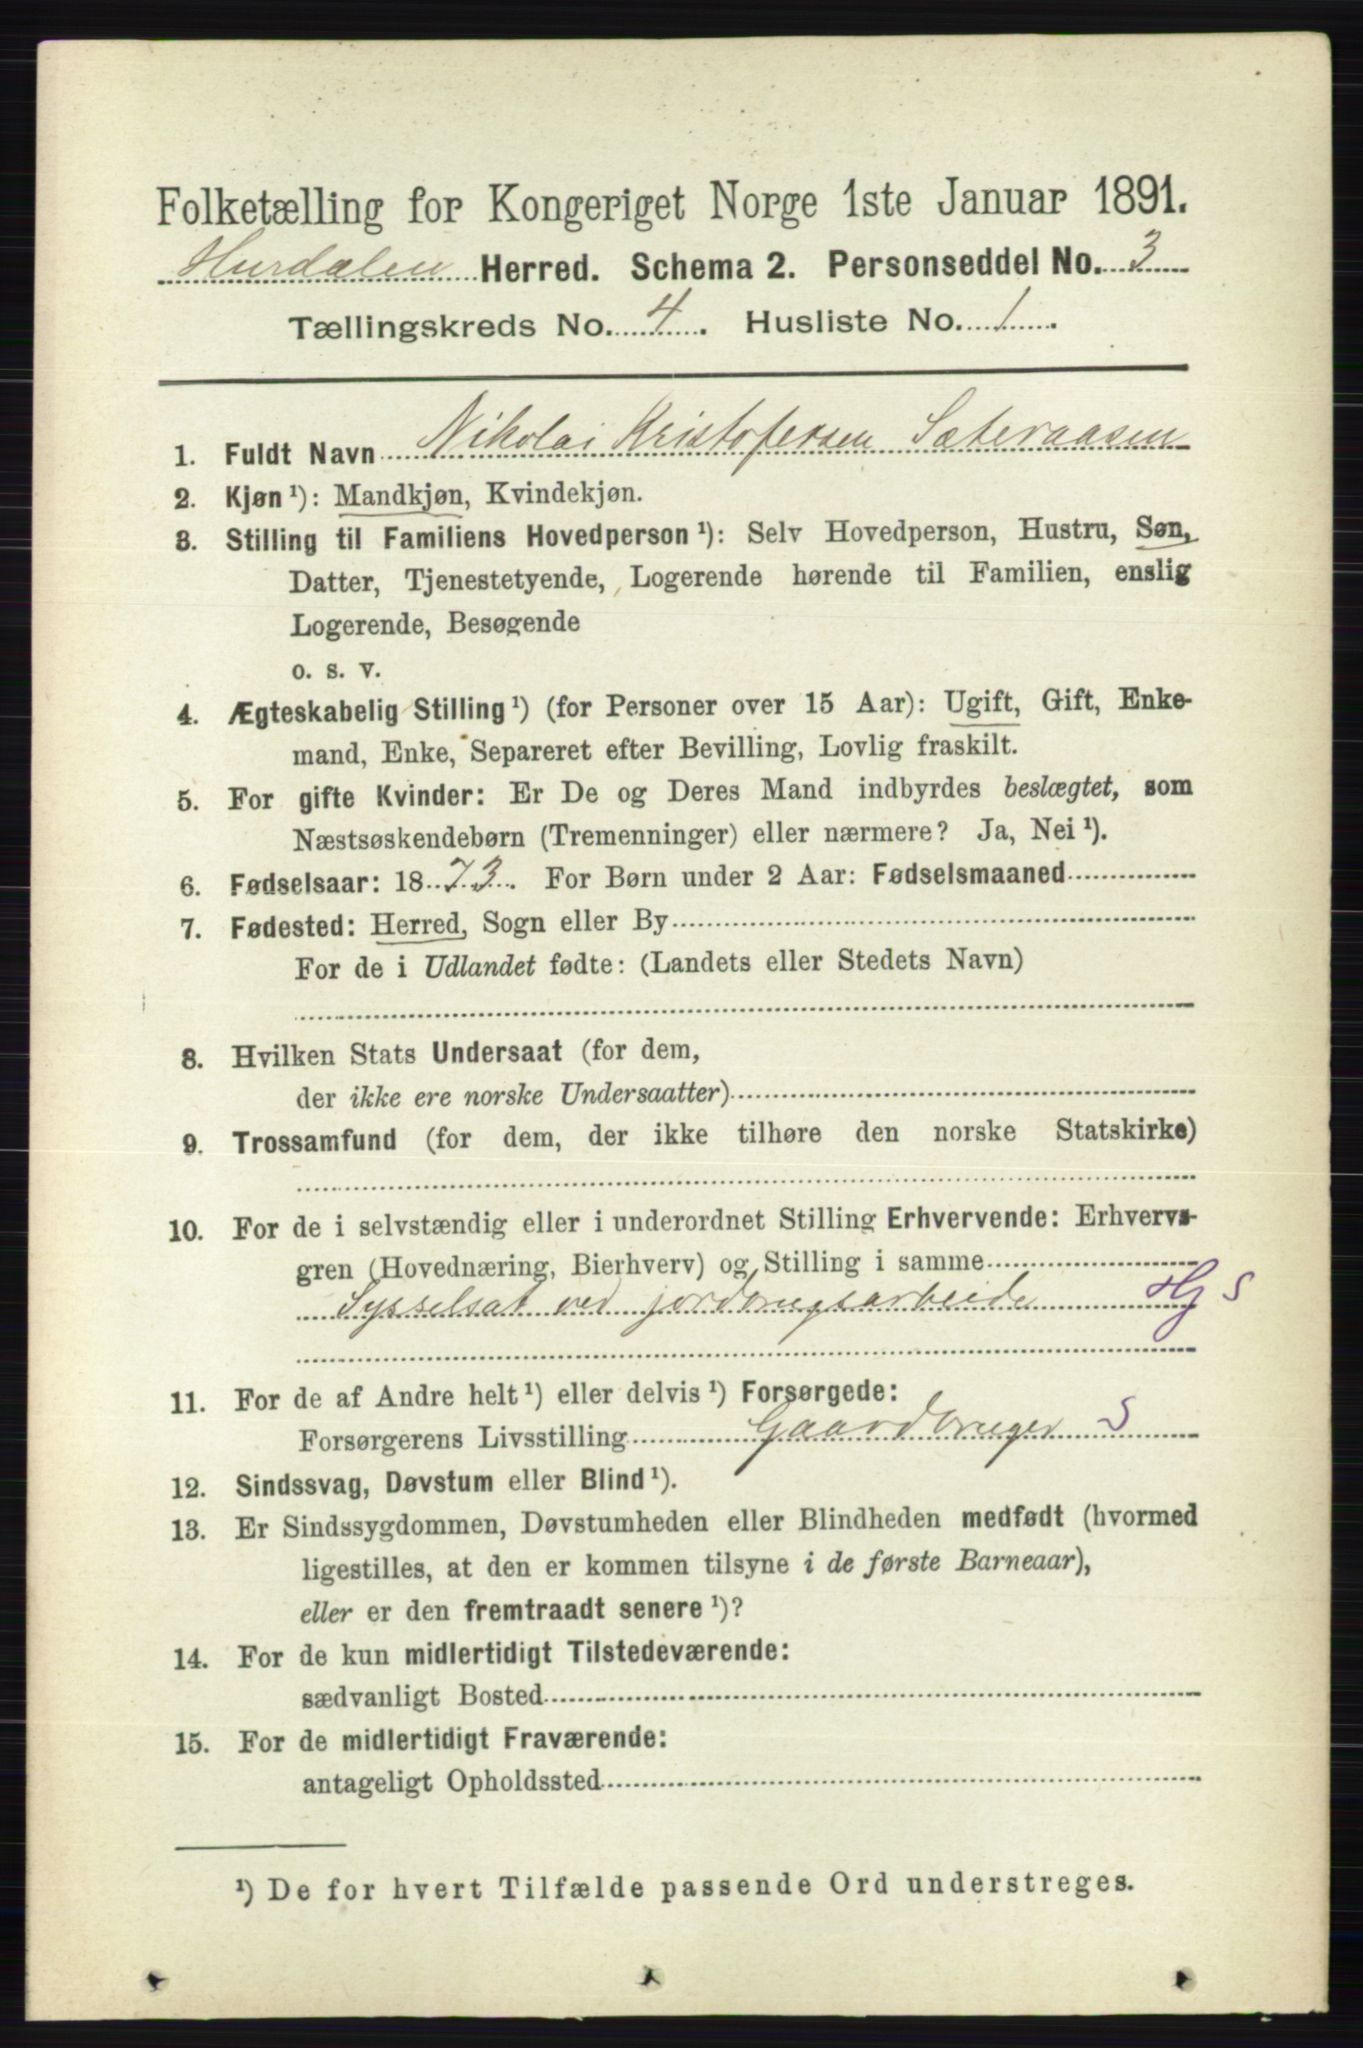 Folketælling for Kongeriget Norge 1ste Januar 1891.
Hurdalen Herred. Schema 2. Personseddel No. 3
Tællingskreds No. 4. Husliste No. 1.
1. Fuldt Navn Nikolai Kristofersen Sæteraasen
2. Kjøn ¹): Mandkjøn, Kvindekjøn.
3. Stilling til Familiens Hovedperson ¹): Selv Hovedperson, Hustru, Søn,
Datter, Tjenestetyende, Logerende hørende til Familien, enslig
Logerende, Besøgende
o. s. v.
4. Ægteskabelig Stilling ¹) (for Personer over 15 Aar): Ugift, Gift, Enke-
mand, Enke, Separeret efter Bevilling, Lovlig fraskilt.
5. For gifte Kvinder: Er De og Deres Mand indbyrdes beslægtet, som
Næstsøskendebørn (Tremenninger) eller nærmere? Ja, Nei ¹).
6. Fødselsaar: 1873. For Børn under 2 Aar: Fødselsmaaned
7. Fødested: Herred, Sogn eller By
For de i Udlandet fødte: (Landets eller Stedets Navn)
8. Hvilken Stats Undersaat (for dem,
der ikke ere norske Undersaatter)
9. Trossamfund (for dem, der ikke tilhøre den norske Statskirke)
10. For de i selvstændig eller i underordnet Stilling Erhvervende: Erhvervs-
gren (Hovednæring, Bierhverv) og Stilling i samme
Sysselsat ved jordbrugsarbeide Hj S
11. For de af Andre helt ¹) eller delvis ¹) Forsørgede:
Forsørgerens Livsstilling Gaardbruger S
12. Sindssvag, Døvstum eller Blind ¹).
13. Er Sindssygdommen, Døvstumheden eller Blindheden medfødt (hvormed
ligestilles, at den er kommen tilsyne i de første Barneaar),
eller er den fremtraadt senere ¹)?
14. For de kun midlertidigt Tilstedeværende:
sædvanligt Bosted
15. For de midlertidigt Fraværende:
antageligt Opholdssted
¹) De for hvert Tilfælde passende Ord understreges.